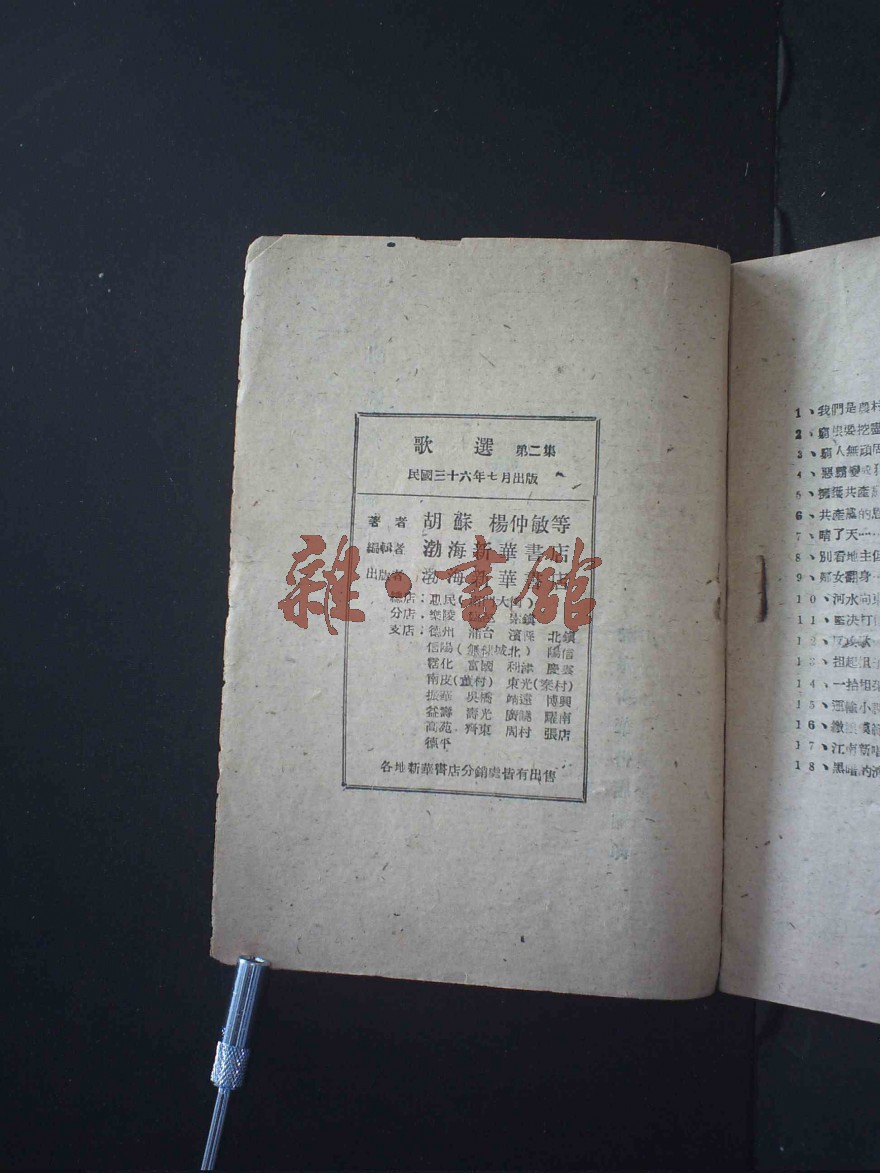 歌選 第二集
民國三十六年七月出版
著者 胡蘇 楊仲敏等
編輯者 渤海新華書店
出版者 渤海新華書店
總店：惠民(大街)
分店：樂陵
支店：德州 蒲台 濱縣 北鎮
信陽(無棣城北) 陽信
霑化 富國 利津 慶雲
南皮(董村) 東光(秦村)
振華 吳橋 靖遠 博興
益壽 壽光 廣饒 耀南
高苑 齊東 周村 張店
德平
各地新華書店分銷處皆有出售
雜·書館
1、我們是農村
2、窮根要挖
3、窮人無頭
4、惡霸變成
5、擁護共產
6、共產黨的恩
7、晴了天……
8、別看地主
9、婦女翻身
10、河水向東
11、堅決打
12、反攻歌
13、担起
14、一拾
15、運輸小
16、
17、江南新
18、黑暗的